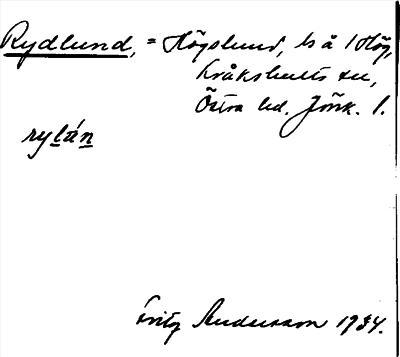 Rydlund, = Högslund, ls å 1 Hög,
Kråkshults sn,
Östra hd. Jönk. l.
rylán
Fritz Andersson 1934.